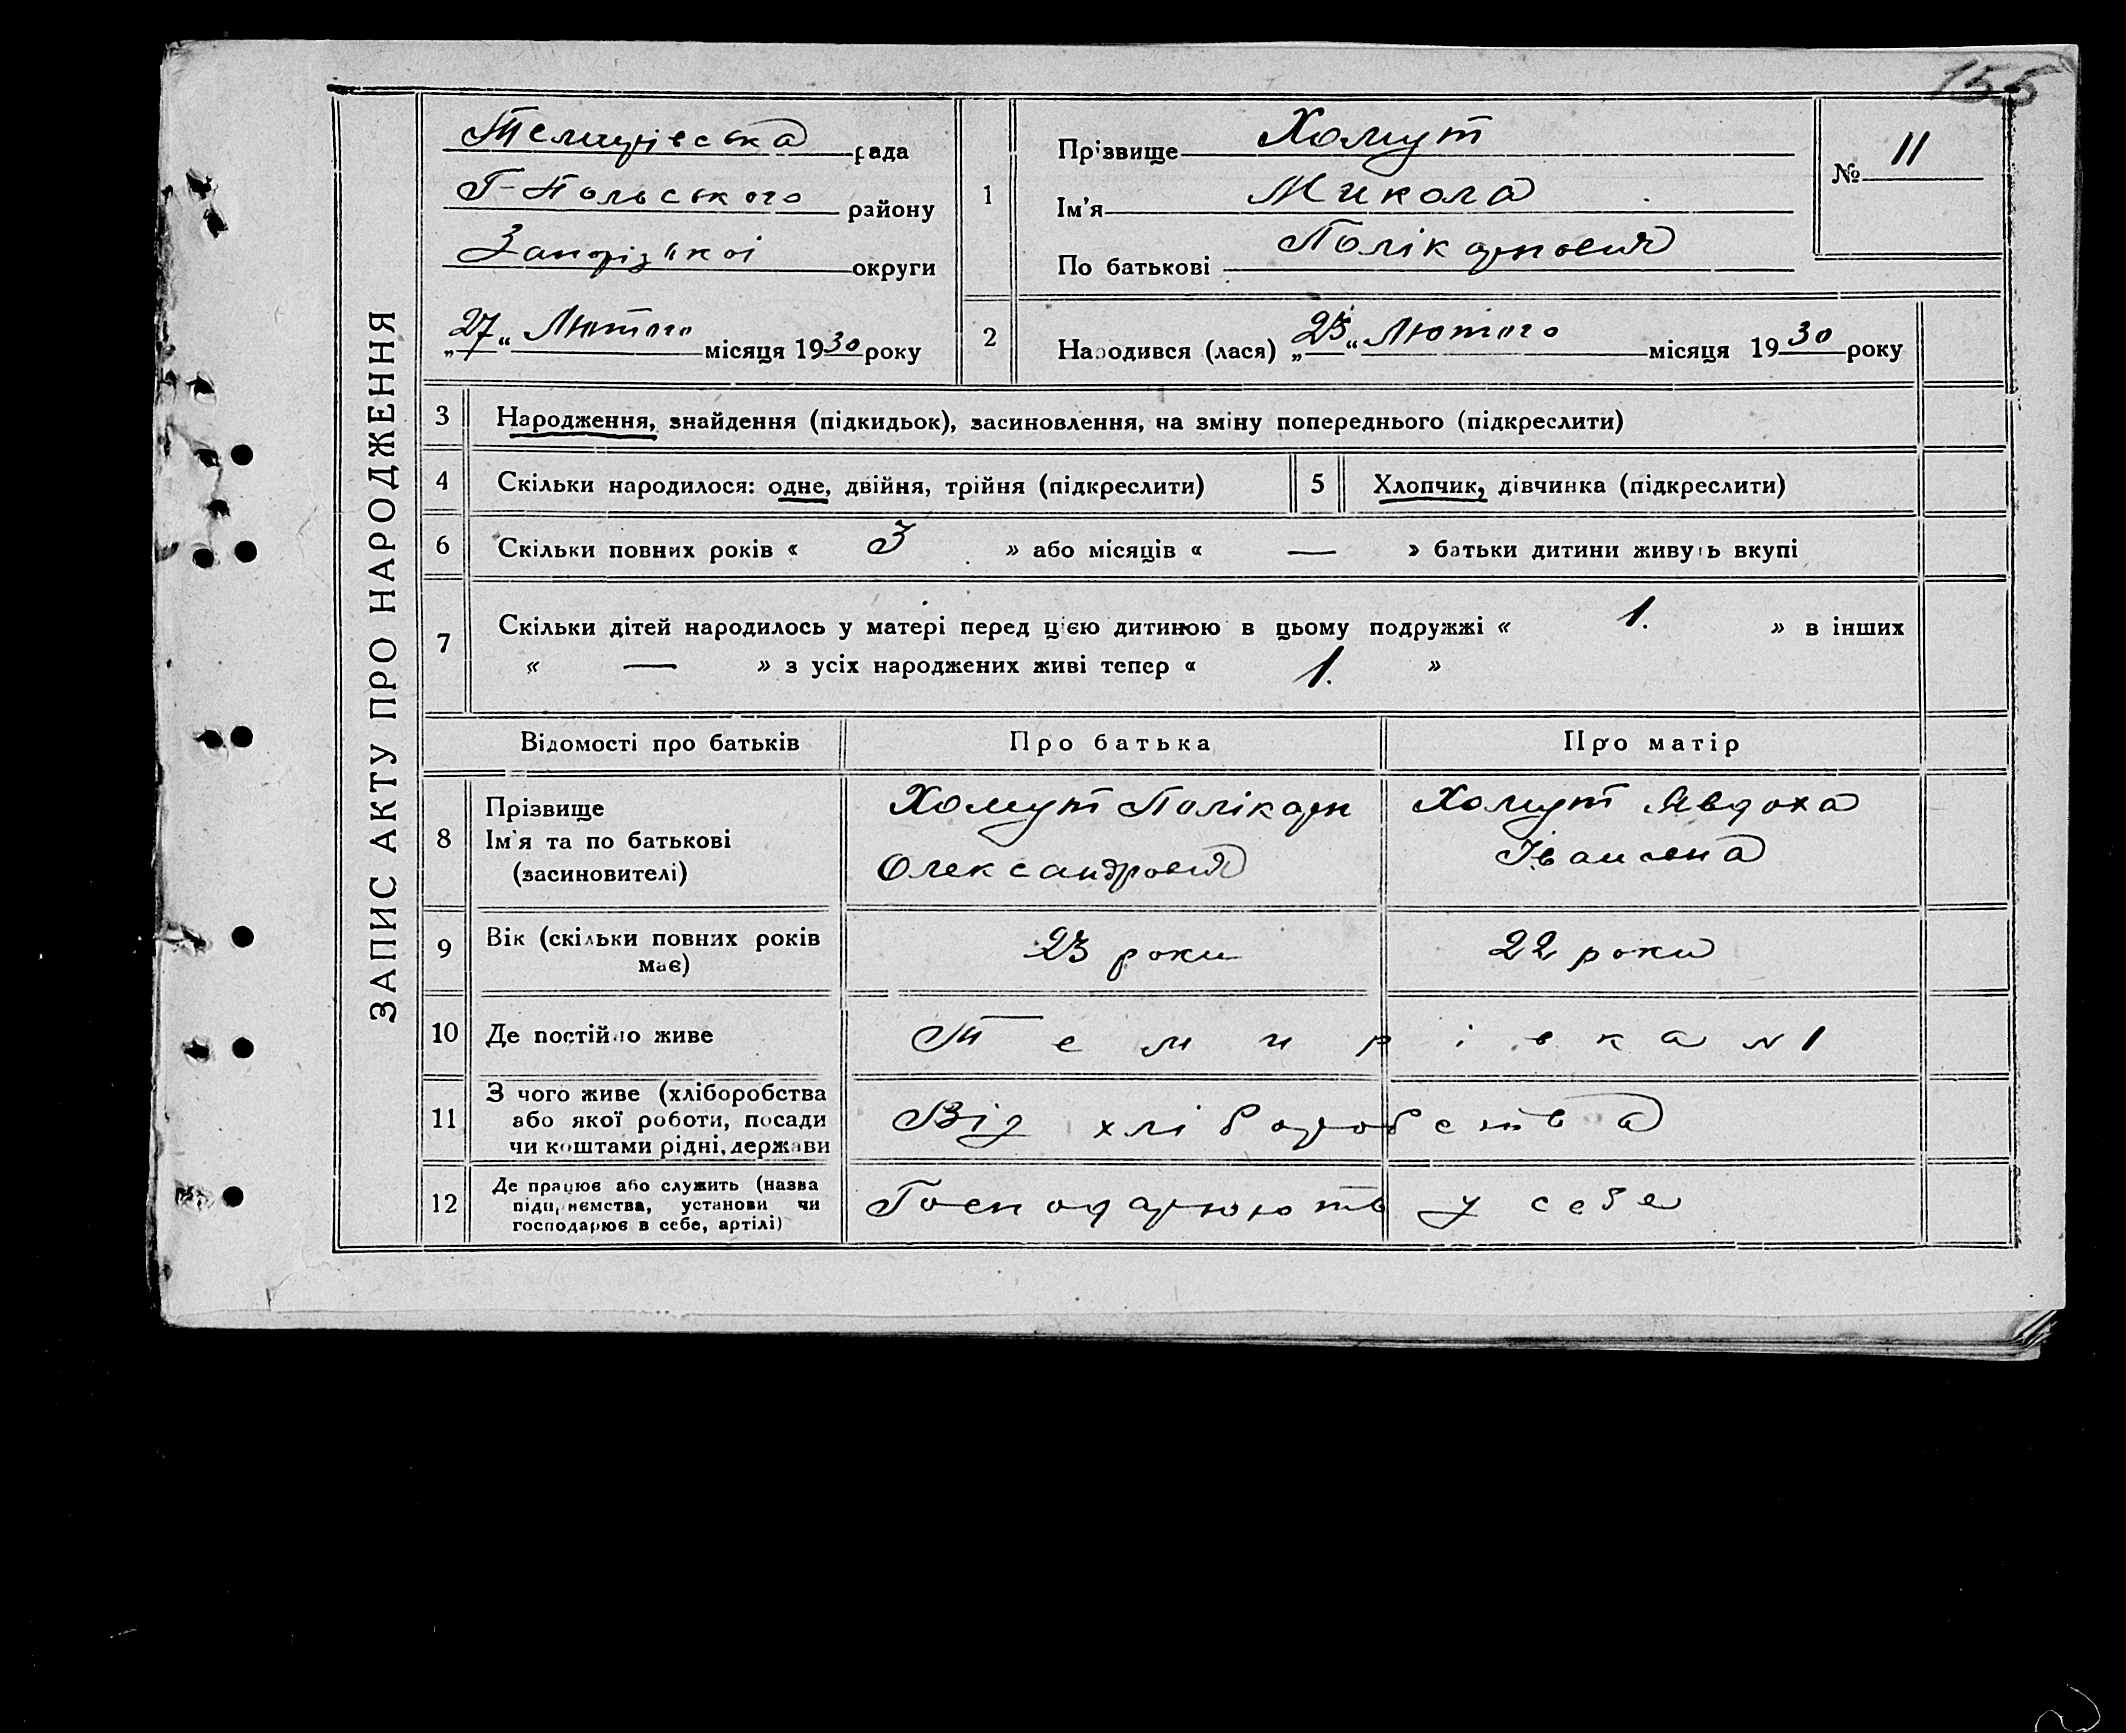 155
ЗАПИС АКТУ ПРО НАРОДЖЕННЯ
Темирівська рада
Г-Польського району
Запорізької округи
„27“ Лютого місяця 1930 року
1
Прізвище Хомут
Ім'я Микола
По батькові Полікарпович
№ 11
2
Народився (лася) „23“ Лютого місяця 1930 року
3 Народження, знайдення (підкидьок), засиновлення, на зміну попереднього (підкреслити)
4 Скільки народилося: одне, двійня, трійня (підкреслити) 5 Хлопчик, дівчинка (підкреслити)
6 Скільки повних років « 3 » або місяців « — » батьки дитини живуть вкупі
7 Скільки дітей народилось у матері перед цією дитиною в цьому подружжі « 1. » в інших
« — » з усіх народжених живі тепер « 1. »
Відомості про батьків Про батька Про матір
8 Прізвище
Ім'я та по батькові
(засиновителі)
Хомут Полікарп
Олександрович
Хомут Явдоха
Івановна
9 Вік (скільки повних років
має)
23 роки 22 роки
10 Де постійно живе Темирівка №1
11 З чого живе (хліборобства
або якої роботи, посади
чи коштами рідні, держави
Від хліборобства
12 Де працює або служить (назва
підприємства, установи чи
господарює в себе, артілі)
Господарюють у себе